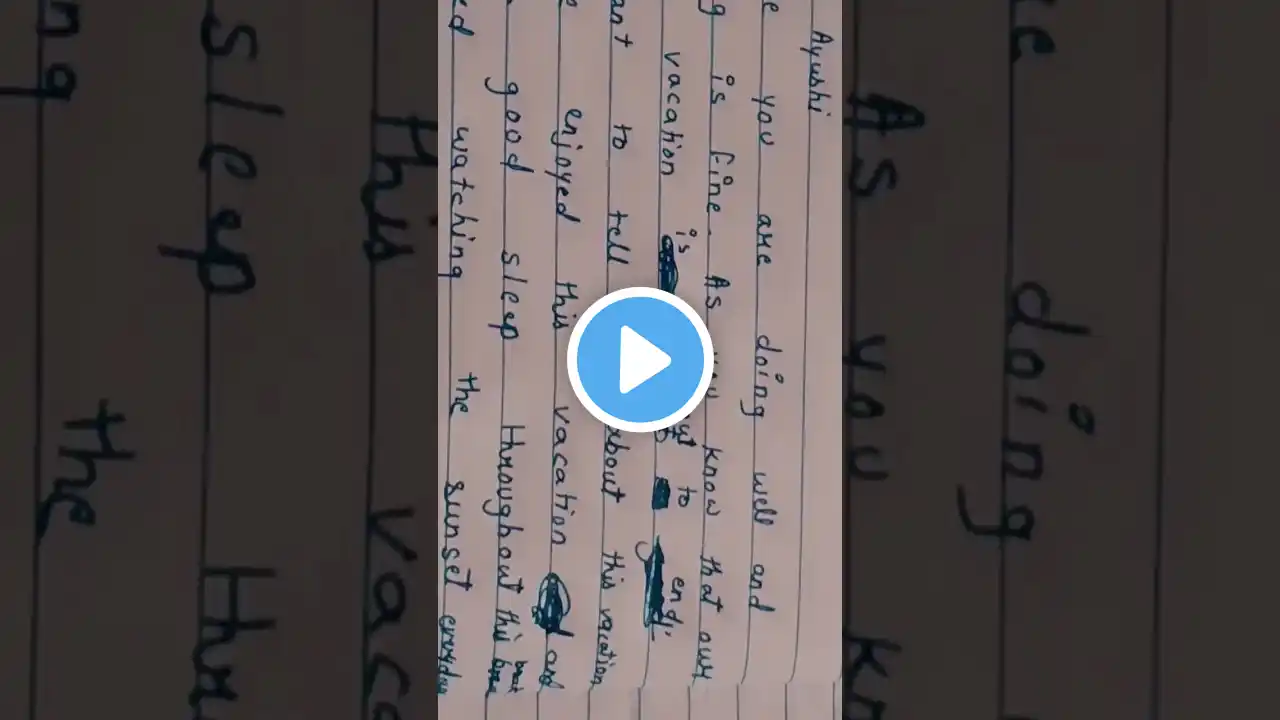 Ayushi
e you are doing well and
g is fine. As you know that our
vacation is to end
ant to tell about this vacation
e enjoyed this vacation and
good sleep throughout this
ed watching the sunset everyday